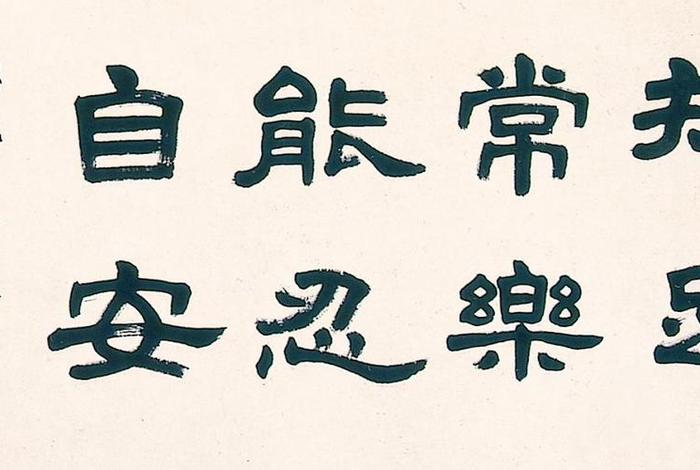 常樂
能忍
自安